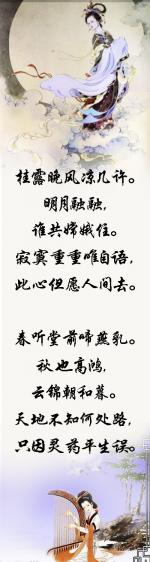 桂露晚风凉几许。
明月融融，
谁共嫦娥住。
寂寞重重唯自语，
此心但愿人间去。
春听堂前啼燕乳。
秋也高鸿，
云锦朝和暮。
天地不知何处路，
只因灵药平生误。